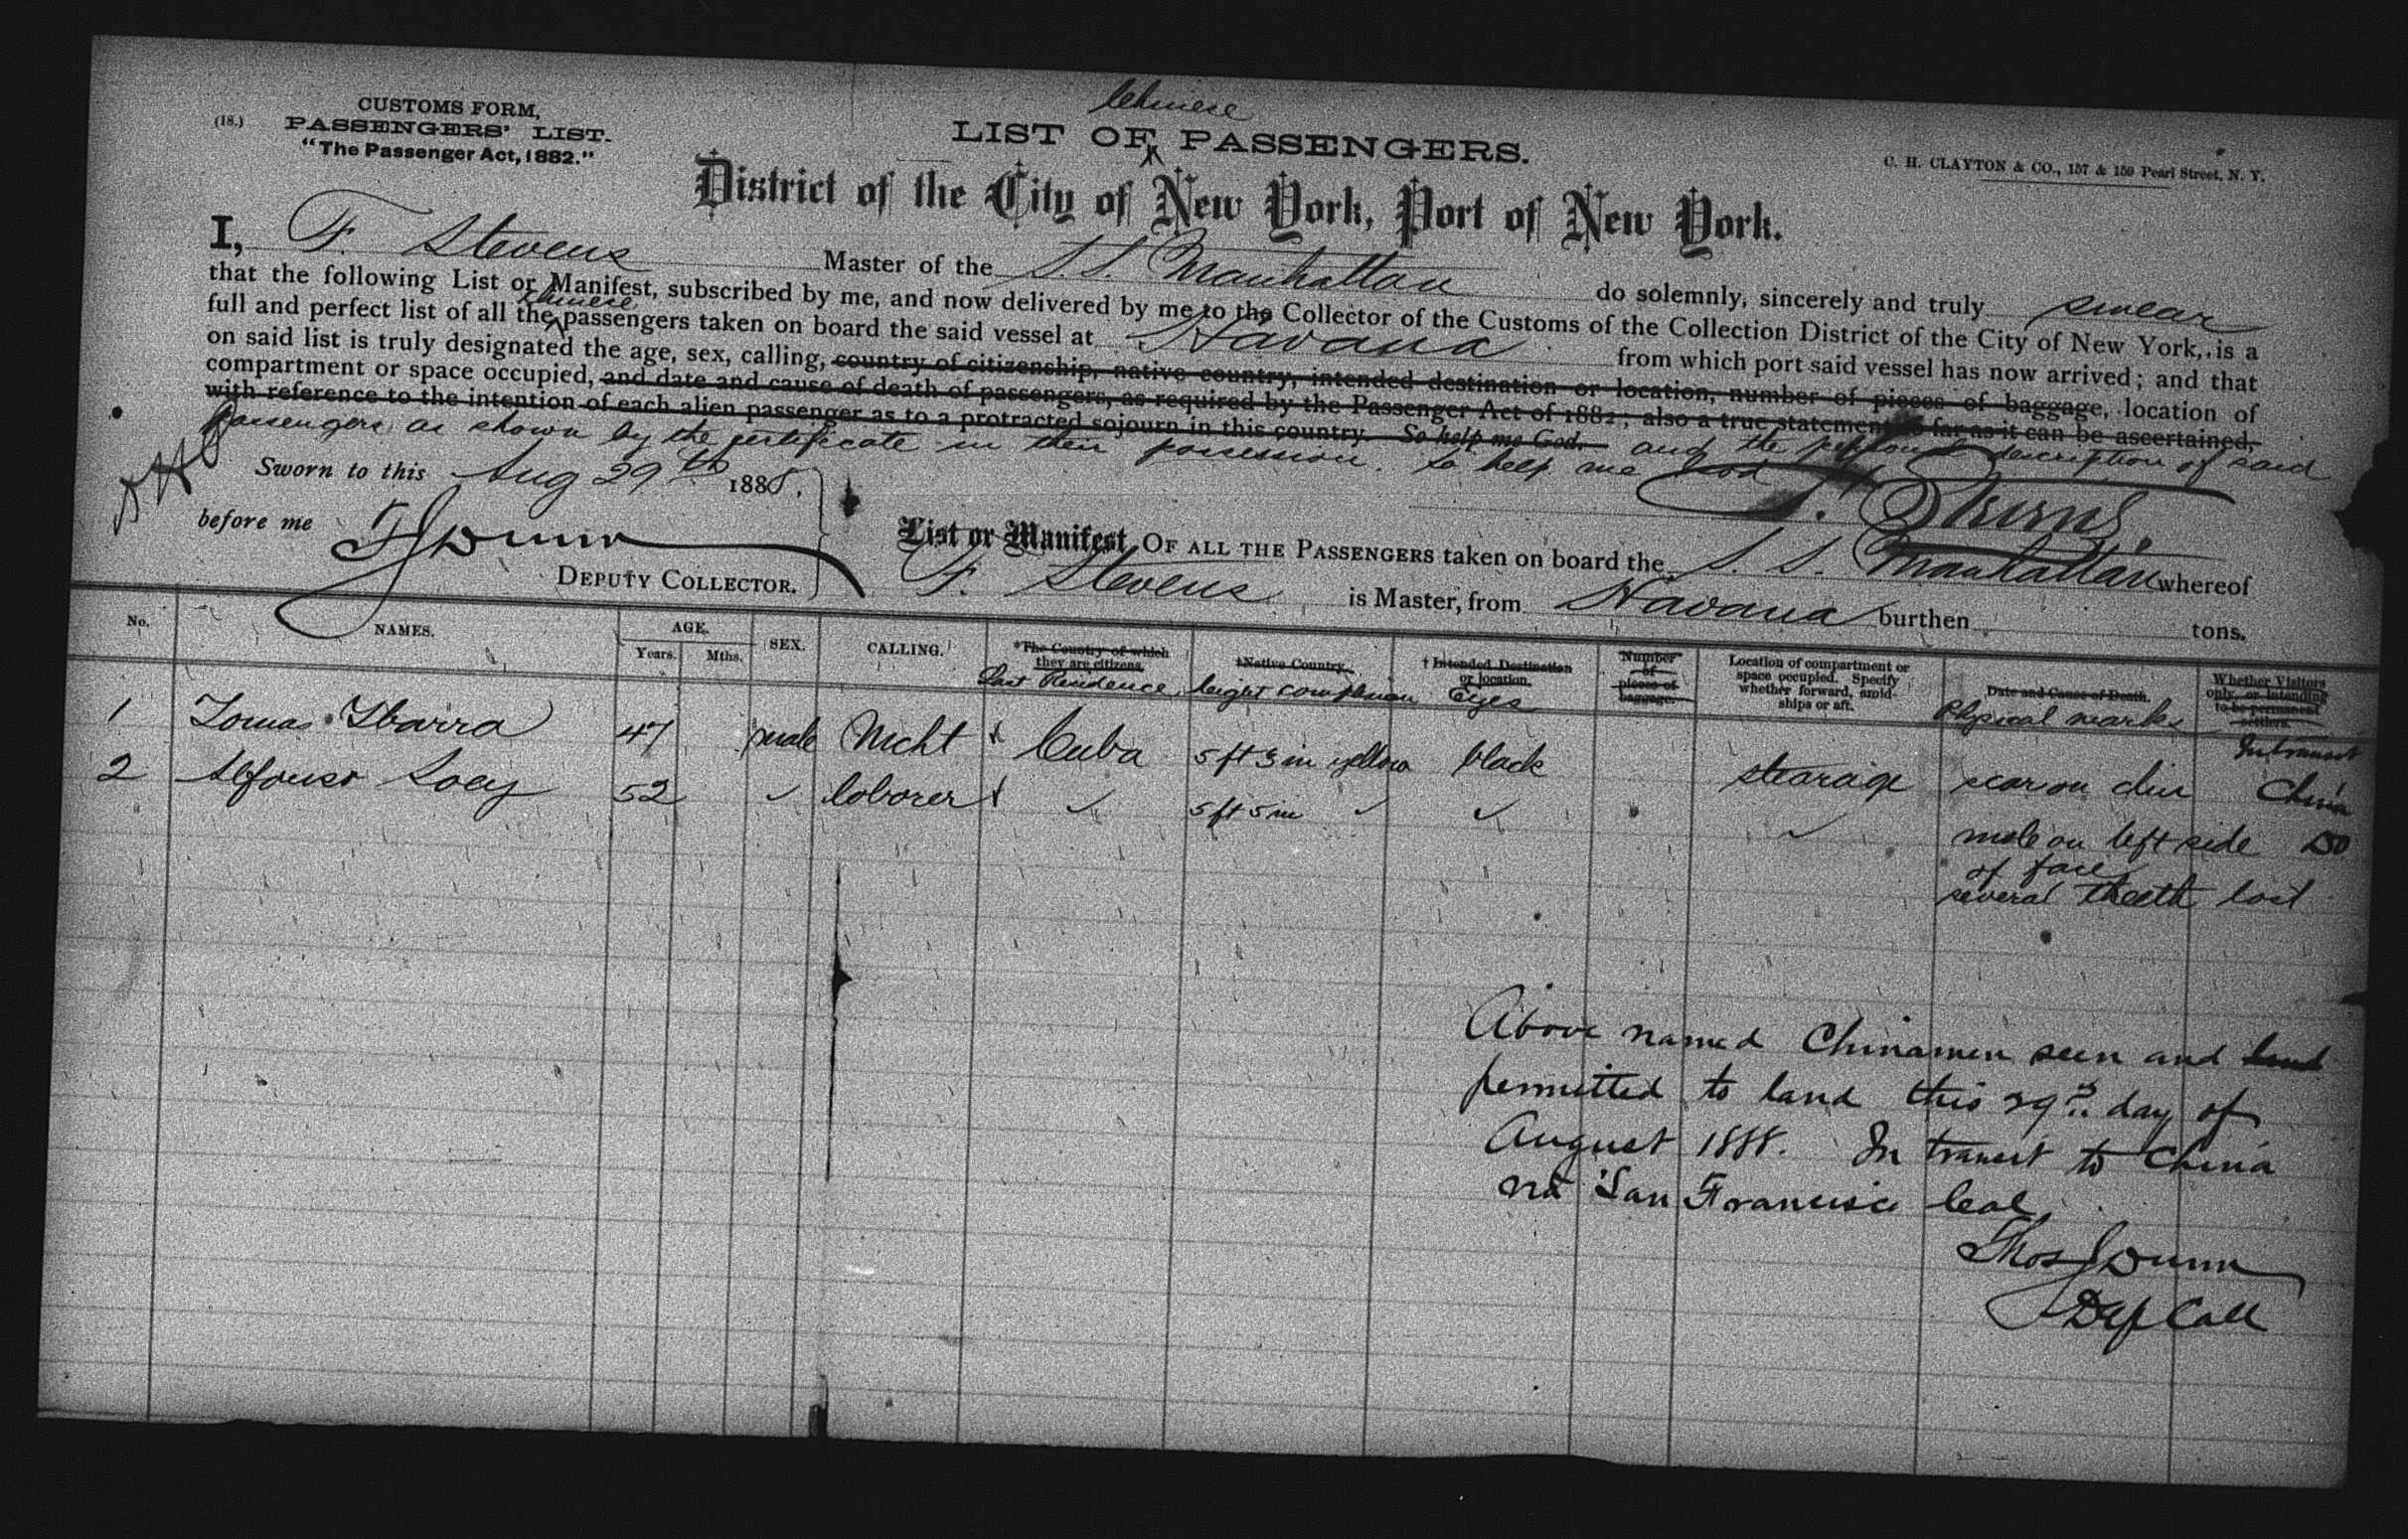 (18.) CUSTOMS FORM,
PASSENGERS' LIST.
"The Passenger Act, 1882."
Chinese
LIST OF PASSENGERS.
C. H. CLAYTON & CO., 157 & 159 Pearl Street, N. Y.
District of the City of New York, Port of New York.
I, F. Stevens Master of the S. S. Manhattan do solemnly, sincerely and truly swear
that the following List or Manifest, subscribed by me, and now delivered by me to the Collector of the Customs of the Collection District of the City of New York, is a
Chinese
full and perfect list of all the passengers taken on board the said vessel at Havana from which port said vessel has now arrived; and that
on said list is truly designated the age, sex, calling, country of citizenship, native country, intended destination or location, number of pieces of baggage, location of
compartment or space occupied, and date and cause of death of passengers, as required by the Passenger Act of 1882; also a true statement so far as it can be ascertained,
with reference to the intention of each alien passenger as to a protracted sojourn in this country. So help me God. and the personal description of said
passengers as shown by the certificate in their possession. So help me God
Sworn to this Aug 29th 1888.
F. Stevens
before me T J Dunn
DEPUTY COLLECTOR.
List or Manifest OF ALL THE PASSENGERS taken on board the S. S. Manhattan whereof
F. Stevens is Master, from Havana burthen tons.
No. NAMES. AGE. Years. Mths. SEX. CALLING. *The Country of which they are citizens. †Native Country. † Intended Destination or location. Number of pieces of baggage. Location of compartment or space occupied. Specify whether forward, amidships or aft. Date and Cause of Death. Whether Visitors only, or intending to be permanent settlers.
Last Residence height complexion Eyes Physical marks
1 Tomas Ybarra 47 male Mcht Cuba 5 ft 3 in yellow black stearaige scar on chin In transit China
2 Alfonso 52 ✓ laborer ✓ 5 ft 5 in ✓ ✓ ✓ mole on left side Do
of face
several theeth lost
Above named Chinamen seen and land
permitted to land this 29th day of
August 1888. In transit to China
via San Francisco Cal.
Thos J Dunn
Dep Coll